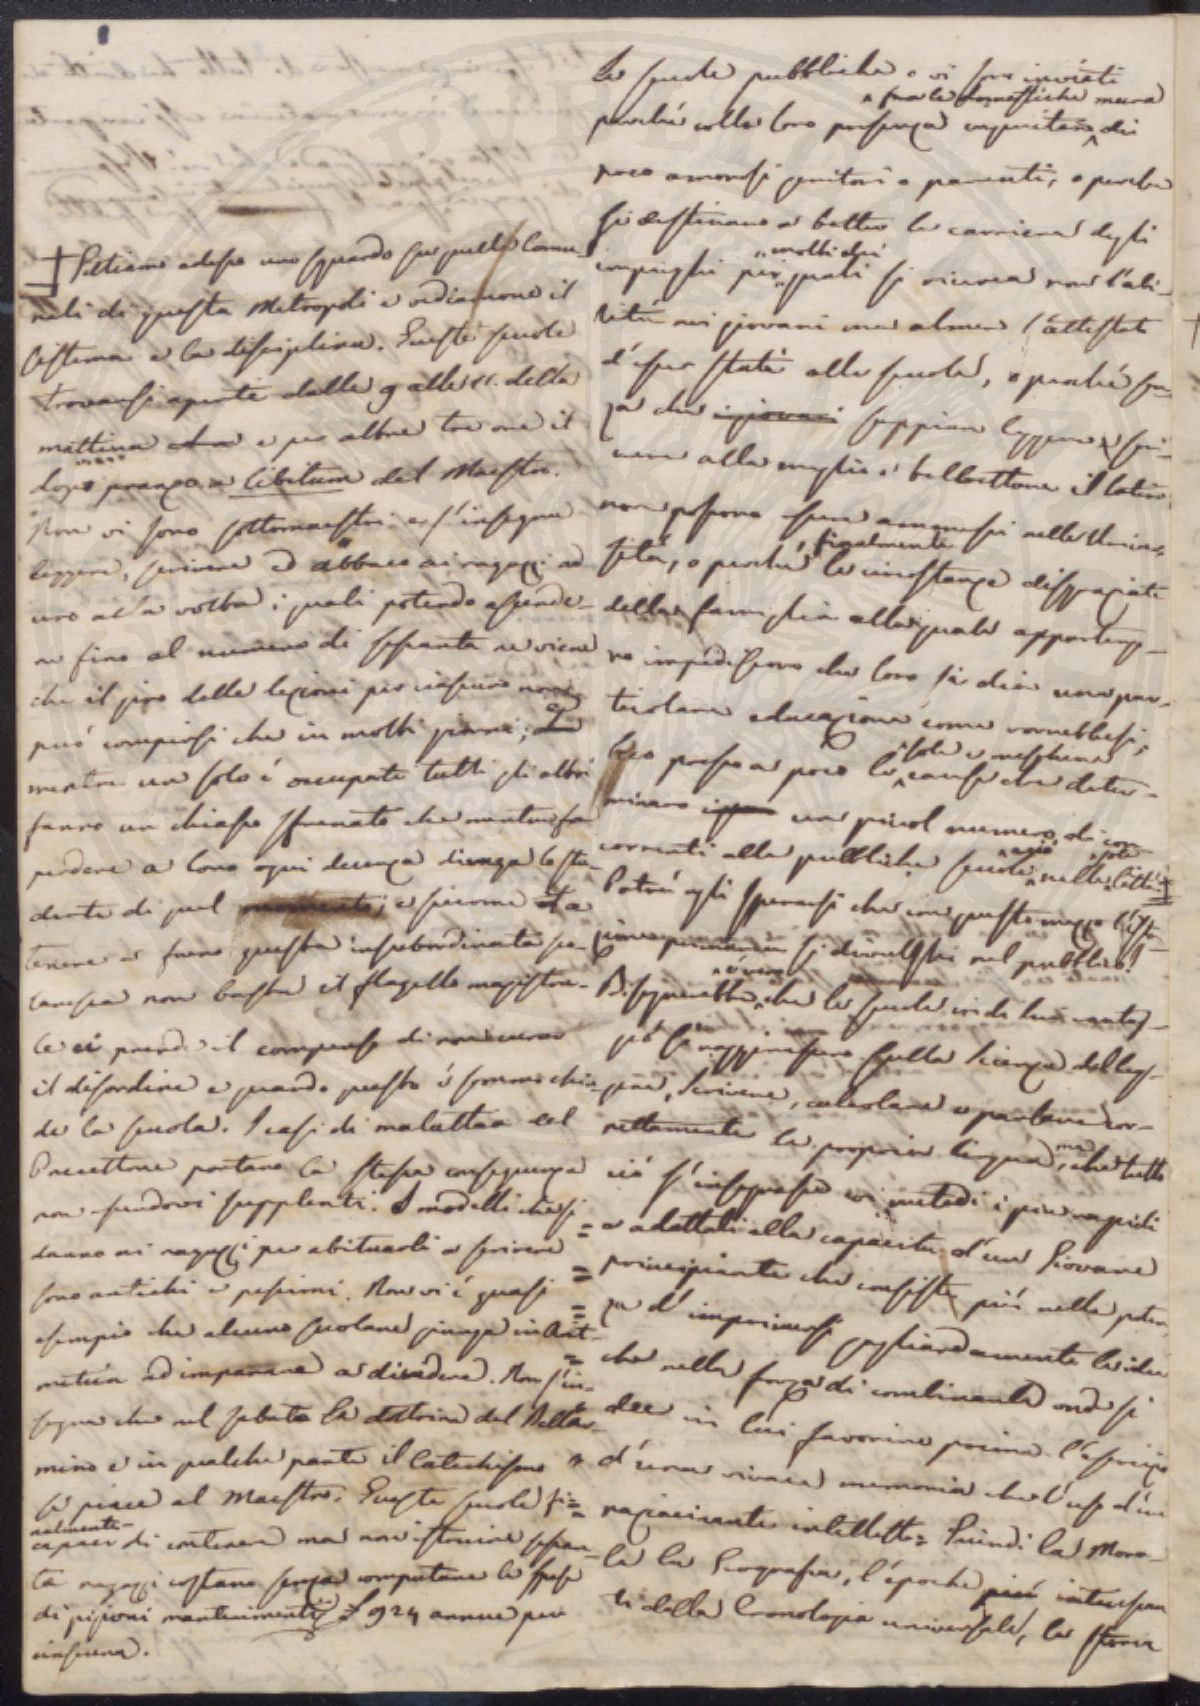 Gettiamo adesso uno sguardo su quelle Comu-
nali di questa Metropoli e vediamone il
sistema e la disciplina. Queste scuole
trovansi aperte dalle 9 alle 11. della
mattina e per altre tre ore il
dopo pranzo a libitum del Maestro.
Non vi sono sottomaestri e s'insegna
leggere, scrivere ed abbaco ai ragazzi ad
uno alla volta i quali potendo ascende-
re fino al numero di sessanta ne viene
che il giro delle lezioni per ciascuno non
può compiersi che in molti giorni; E
mentre un solo è occupato tutti gli altri
fanno un chiasso sfrenato che mentre fa
perdere a loro ogni
dente di quel e siccome a
tenere a freno questa insubordinata sco-
laresca non basta il flagello magistra-
le ei prende il compenso di non curare
il disordine e quando questo è sommo chiu-
de la scuola. I casi di malattia del
Precettore portano la stessa conseguenza
non essendovi supplenti. I modelli che si
danno ai ragazzi per abituarli a scrivere
sono antichi e pessimi. Non vi è quasi
esempio che alcuno scolare giunga in Arit-
metica ad imparare a dividere. Non s'in-
segna che nel sabato la dottrina del Bellar-
mino e in qualche parte il Catechismo
se piace al Maestro. Queste scuole fi-
nalmente
capaci di contenere ma non istruire sessan-
ta ragazzi costano senza computare le spese
di pigioni mantenimenti £ 924 annue per
ciascuna.
le scuole pubbliche o vi sono inviati
fra le domestiche mura
perché colla loro presenza inquietano dei
poco amorosi genitori o parenti, o perché
si destinano a battere la carriera degli
impieghi per molti dei quali si ricerca non l'abi-
lità nei giovani ma almeno l'attestato
d'essere stati alle scuole, o perché sen-
za che i giovani sappian leggere e scri-
vere alla meglio e balbettare il latino
non possono essere ammessi nelle Univer-
sità, o perché finalmente le circostanze disgraziate
della famiglia alla quale apparten-
no impediscono che loro si dia una par-
ticolare educazione come vorrebbesi;
Ecco presso a poco le sole e meschine cause che deter-
minano un piccol numero di con-
correnti alle pubbliche scuole nelle città
Potrà egli sperarsi che con questo mezzo l'istru-
zione si divulghi nel pubblico?
Bisognerebbe che le scuole
si raggirassero sulla scienza del leg-
gere, scrivere, calcolare e parlare cor-
rettamente la propria lingua, ma che tutto
ciò s'insegnasse coi metodi i più rapidi
e adattati alla capacità d'un Giovane
principiante che consiste più nella poten-
za d'imprimersi gagliardamente le idee
che nella forza di combinarle onde si
dee in lui favorire prima l'esercizio
d'una vivace memoria che l'uso d'un
raziocinante intelletto. Quindi la Mora-
le la Geografia, l'epoche più interessan
ti della Cronologia universale, la storia